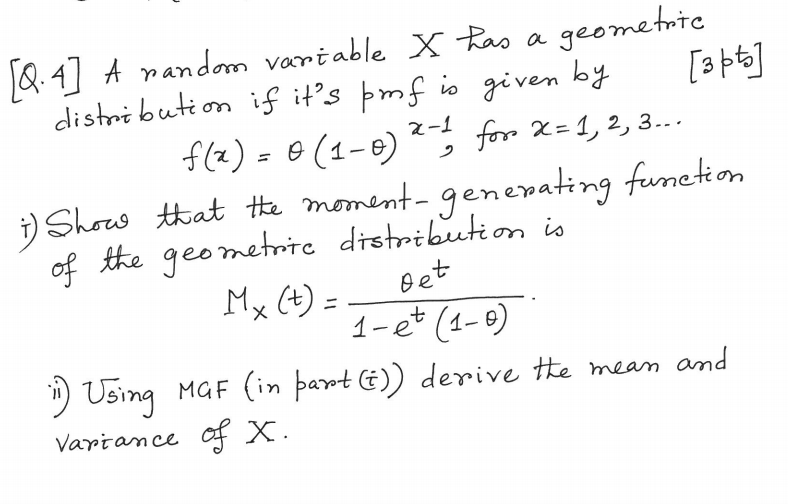 [Q.4] A random variable X has a geometric
distribution if it's pmf is given by [3 pts]
f(x) = θ (1-θ)^{x-1}, for x=1, 2, 3...
i) Show that the moment-generating function
of the geometric distribution is
M_X (t) = θe^t / (1-e^t (1-θ)) .
ii) Using MGF (in part (i)) derive the mean and
Variance of X.